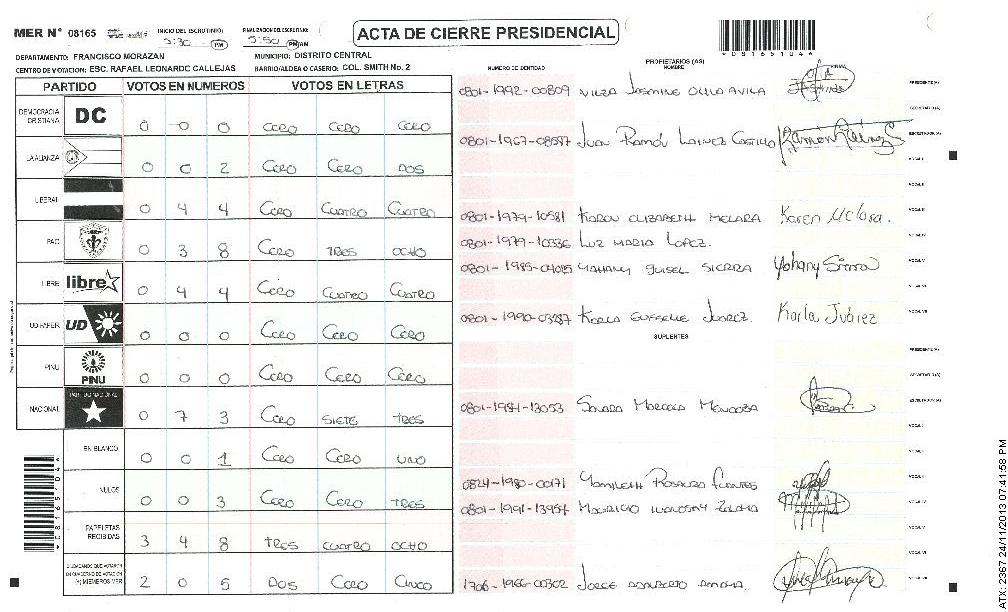 MER N° 08165
INICIO DEL ESCRUTINIO: 5:30 PM
FINALIZACION DEL ESCRUTINIO: 5:50 PM AM
ACTA DE CIERRE PRESIDENCIAL
DEPARTAMENTO: FRANCISCO MORAZAN MUNICIPIO: DISTRITO CENTRAL
CENTRO DE VOTACION: ESC. RAFAEL LEONARDC CALLEJAS BARRIO/ALDEA O CASERIO: COL. SMITH No. 2
PARTIDO VOTOS EN NUMEROS VOTOS EN LETRAS
DEMOCRACIA CRISTIANA DC 0 0 0 CERO CERO CERO
LA ALIANZA 0 0 2 CERO CERO DOS
LIBERAL 0 4 4 CERO CUATRO CUATRO
PAC 0 3 8 CERO TRES OCHO
LIBRE libre 0 4 4 CERO CUATRO CUATRO
UD-FAPER UD 0 0 0 CERO CERO CERO
PINU PINU 0 0 0 CERO CERO CERO
NACIONAL PARTIDO NACIONAL 0 7 3 CERO SIETE TRES
EN BLANCO 0 0 1 CERO CERO UNO
NULOS 0 0 3 CERO CERO TRES
PAPELETAS RECIBIDAS 3 4 8 TRES CUATRO OCHO
CIUDADANOS QUE VOTARON EN CUADERNO DE VOTACION (+) MIEMBROS MER 2 0 5 DOS CERO CINCO
*08165104*
NUMERO DE IDENTIDAD PROPIETARIOS (AS) NOMBRE FIRMA
0801-1992-00809 AVILA PRESIDENTE(A)
SECRETARIO(A)
0801-1967-08597 JUAN RAMÓN LAINEZ CASTILLO Ramón Lainez ESCRUTADOR(A)
VOCAL I
VOCAL II
0801-1979-10581 KAREN ELIZABETH MELARA Karen Melara. VOCAL III
0801-1979-10336 LUZ MARIA LOPEZ. VOCAL IV
0801-1985-04015 YOHANY GUISEL SIERRA Yohany Sierra VOCAL V
VOCAL VI
0801-1990-03787 KARLA JUAREZ. Karla Juárez VOCAL VII
SUPLENTES
PRESIDENTE(A)
SECRETARIO(A)
0801-1981-13053 SANDRA MARCELA MENDOZA ESCRUTADOR(A)
VOCAL I
VOCAL II
0824-1980-00171 YAMILETH ROSAURA FUENTES VOCAL III
0801-1991-13957 MAURICIO VOCAL IV
VOCAL V
VOCAL VI
1706-1966-00302 JORGE ADALBERTO VOCAL VII
ATX: 2367 24/11/2013 07:41:58 PM